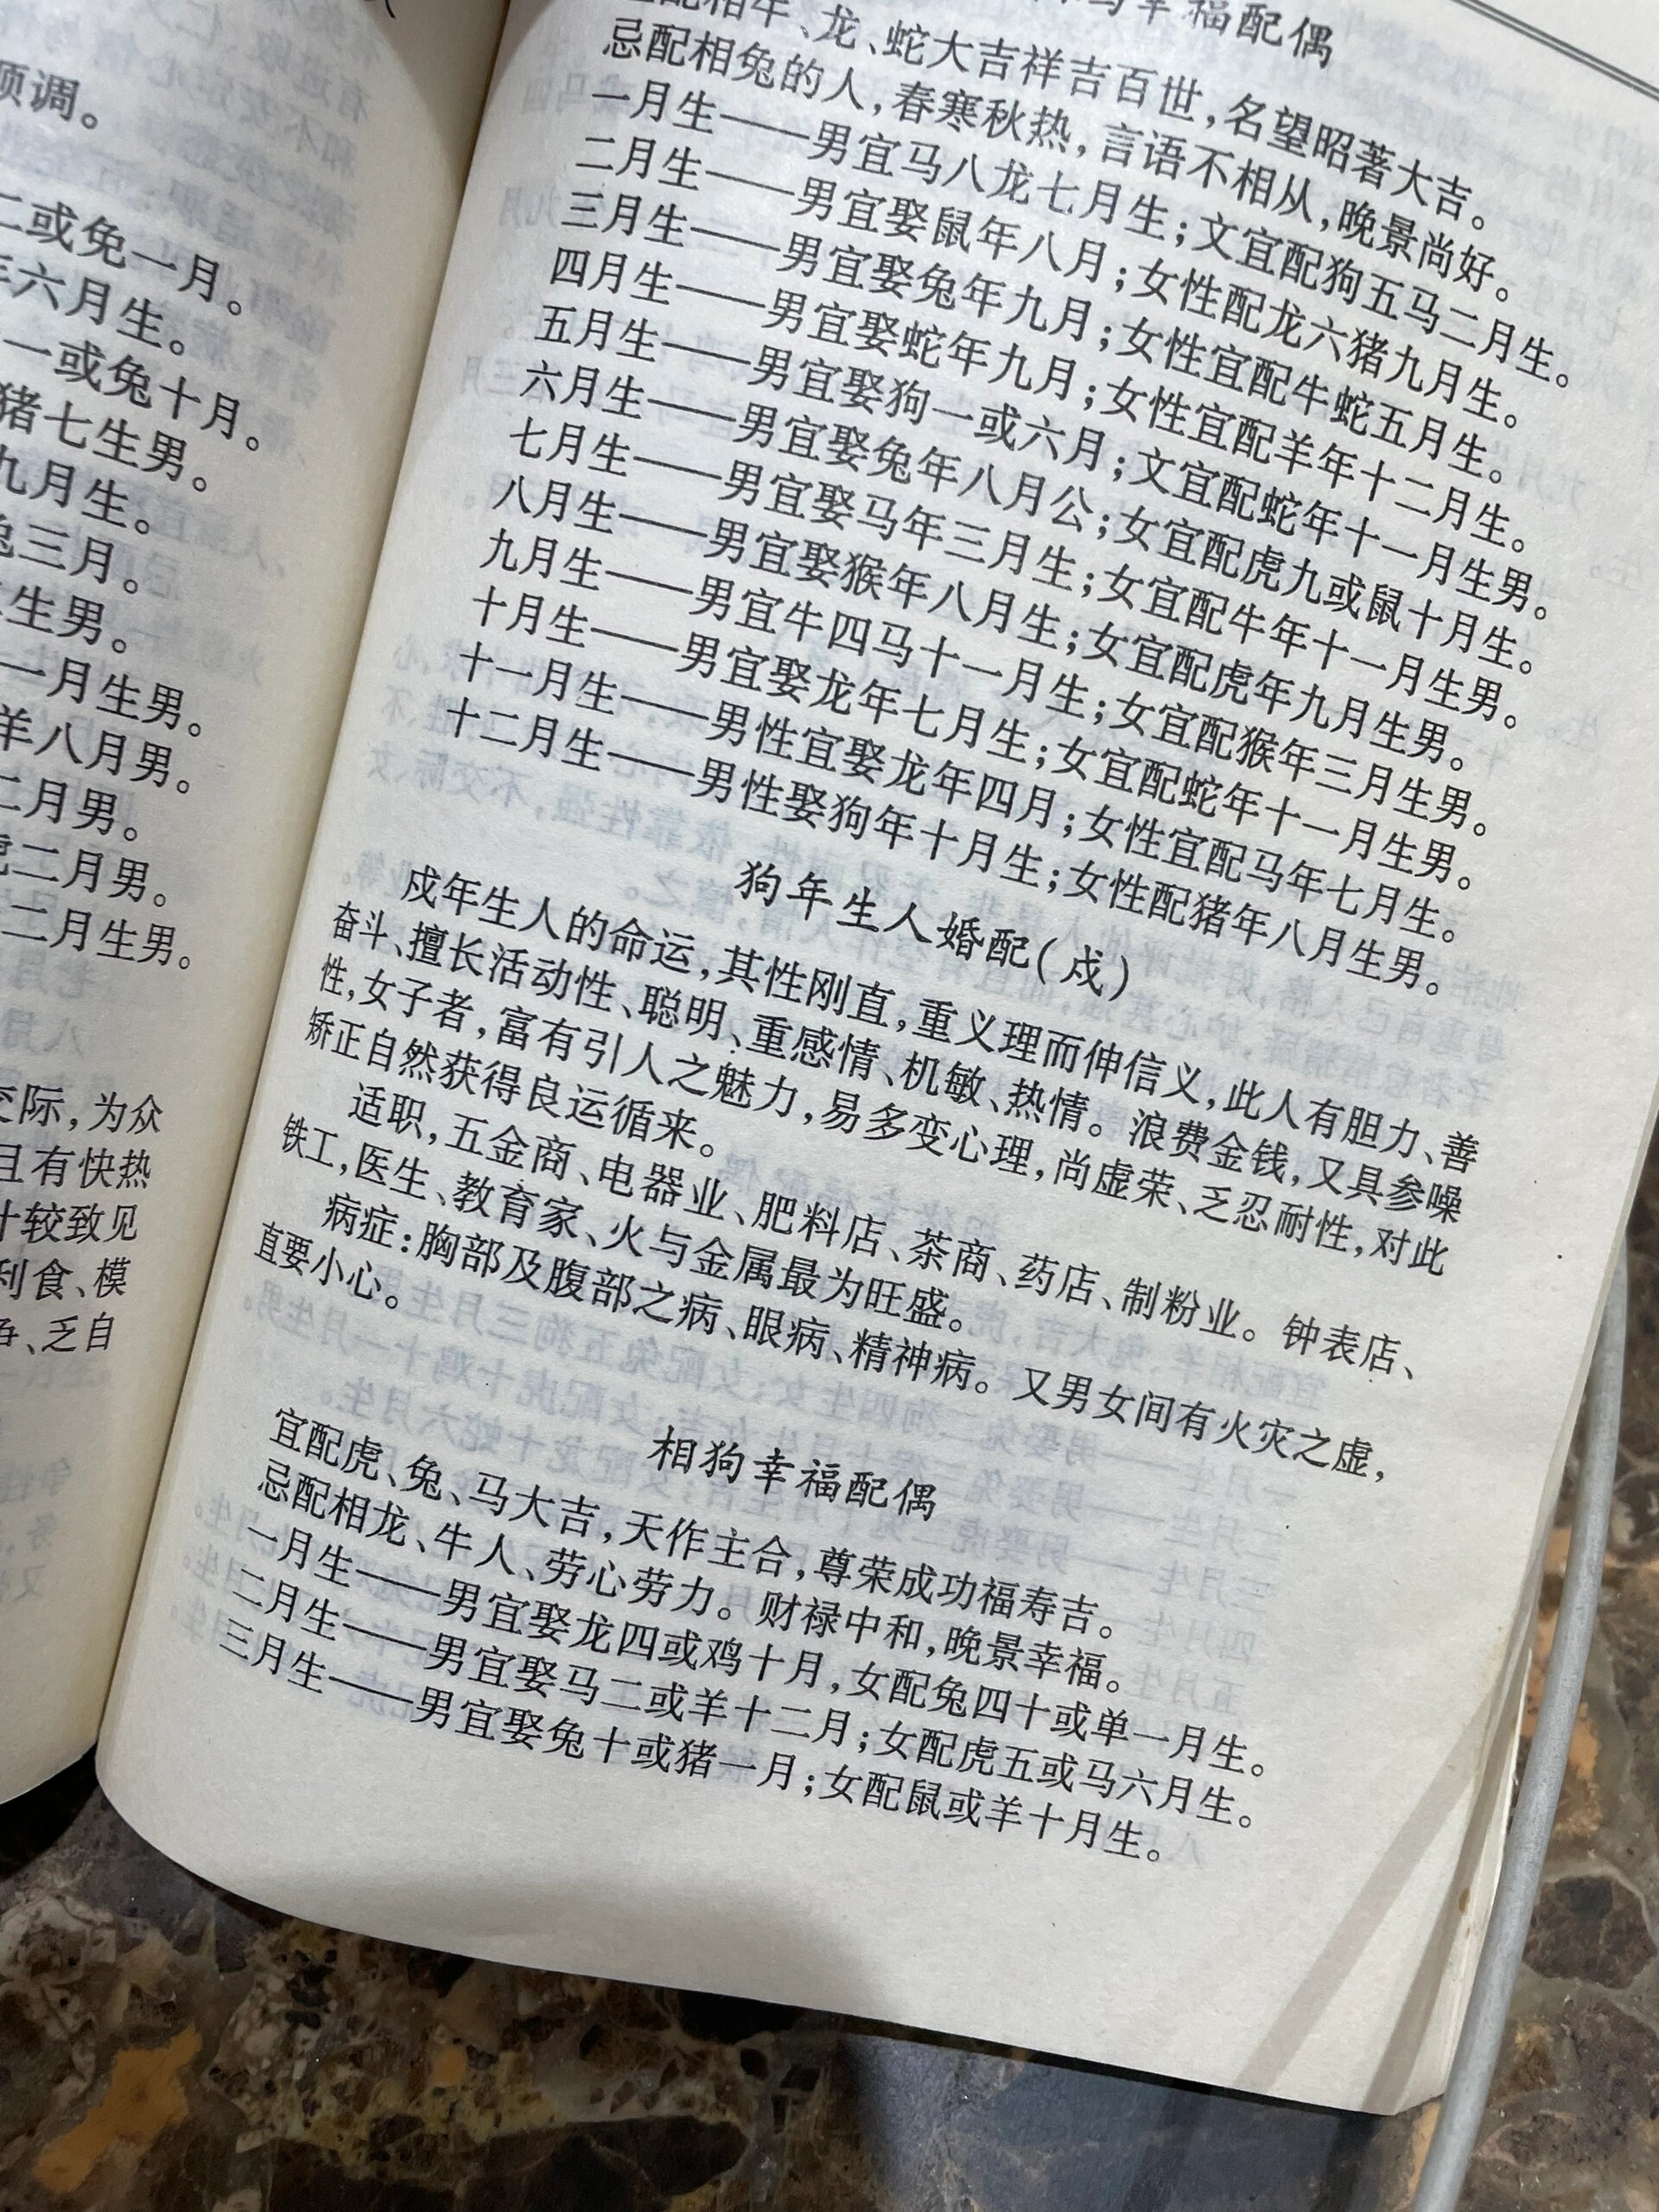 顺调。
二或免一月。
年六月生。
一或兔十月。
猪七生男。
九月生。
兔三月。
生男。
一月生男。
羊八月男。
二月男。
虎二月男。
二月生男。
交际，为众
且有快热
计较致见
利食、模
争、乏自
幸福配偶
配相牛、龙、蛇大吉祥吉百世，名望昭著大吉。
忌配相兔的人，春寒秋热，言语不相从，晚景尚好。
一月生——男宜马八龙七月生；文宜配狗五马二月生。
二月生——男宜娶鼠年八月；女性配龙六猪九月生。
三月生——男宜娶兔年九月；女性宜配牛蛇五月生。
四月生——男宜娶蛇年九月；女性宜配羊年十二月生。
五月生——男宜娶狗一或六月；文宜配蛇年十一月生男。
六月生——男宜娶兔年八月公；女宜配虎九或鼠十月生。
七月生——男宜娶马年三月生；女宜配牛年十一月生男。
八月生——男宜娶猴年八月生；女宜配虎年九月生男。
九月生——男宜牛四马十一月生；女宜配猴年三月生男。
十月生——男宜娶龙年七月生；女宜配蛇年十一月生男。
十一月生——男性宜娶龙年四月；女性宜配马年七月生。
十二月生——男性娶狗年十月生；女性配猪年八月生男。
狗年生人婚配（戍）
戍年生人的命运，其性刚直，重义理而伸信义，此人有胆力、善
奋斗、擅长活动性、聪明、重感情、机敏、热情。浪费金钱，又具参噪
性，女子者，富有引人之魅力，易多变心理，尚虚荣、乏忍耐性，对此
矫正自然获得良运循来。
适职，五金商、电器业、肥料店、茶商、药店、制粉业。钟表店、
铁工，医生、教育家、火与金属最为旺盛。
病症：胸部及腹部之病、眼病、精神病。又男女间有火灾之虚，
直要小心。
相狗幸福配偶
宜配虎、兔、马大吉，天作主合，尊荣成功福寿吉。
忌配相龙、牛人、劳心劳力。财禄中和，晚景幸福。
一月生——男宜娶龙四或鸡十月，女配兔四十或单一月生。
二月生——男宜娶马二或羊十二月；女配虎五或马六月生。
三月生——男宜娶兔十或猪一月；女配鼠或羊十月生。